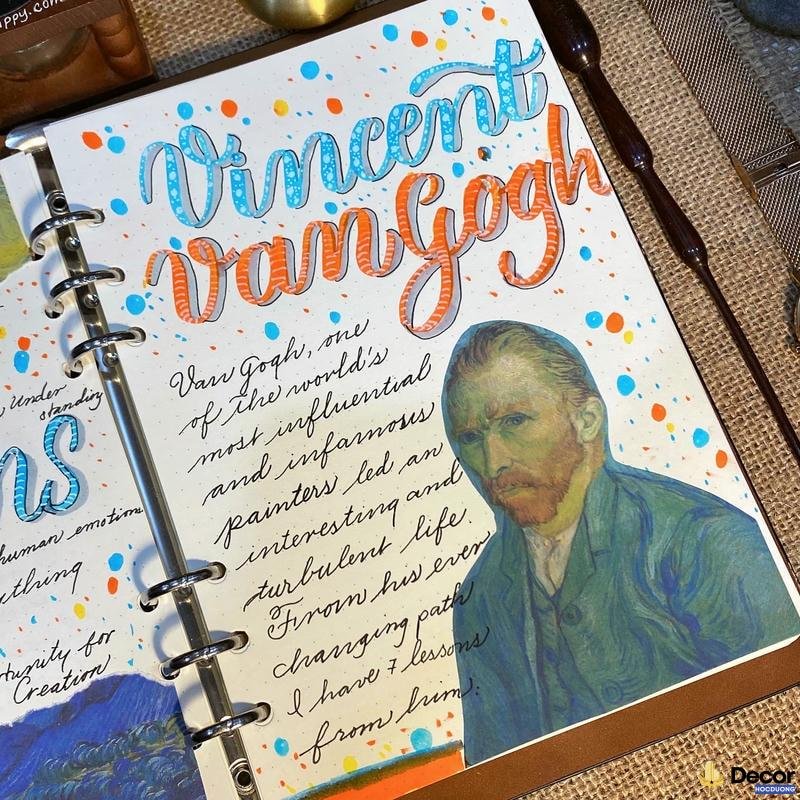 ppy.com
Vincent
Van Gogh
Van Gogh, one
of the world's
most influential
and infamous
painters led an
interesting and
turbulent life.
From his ever
changing path
I have 7 lessons
from him:
under
standing
ns
human emotions
ything
rtunity for
Creation
Decor
HOCDUONG